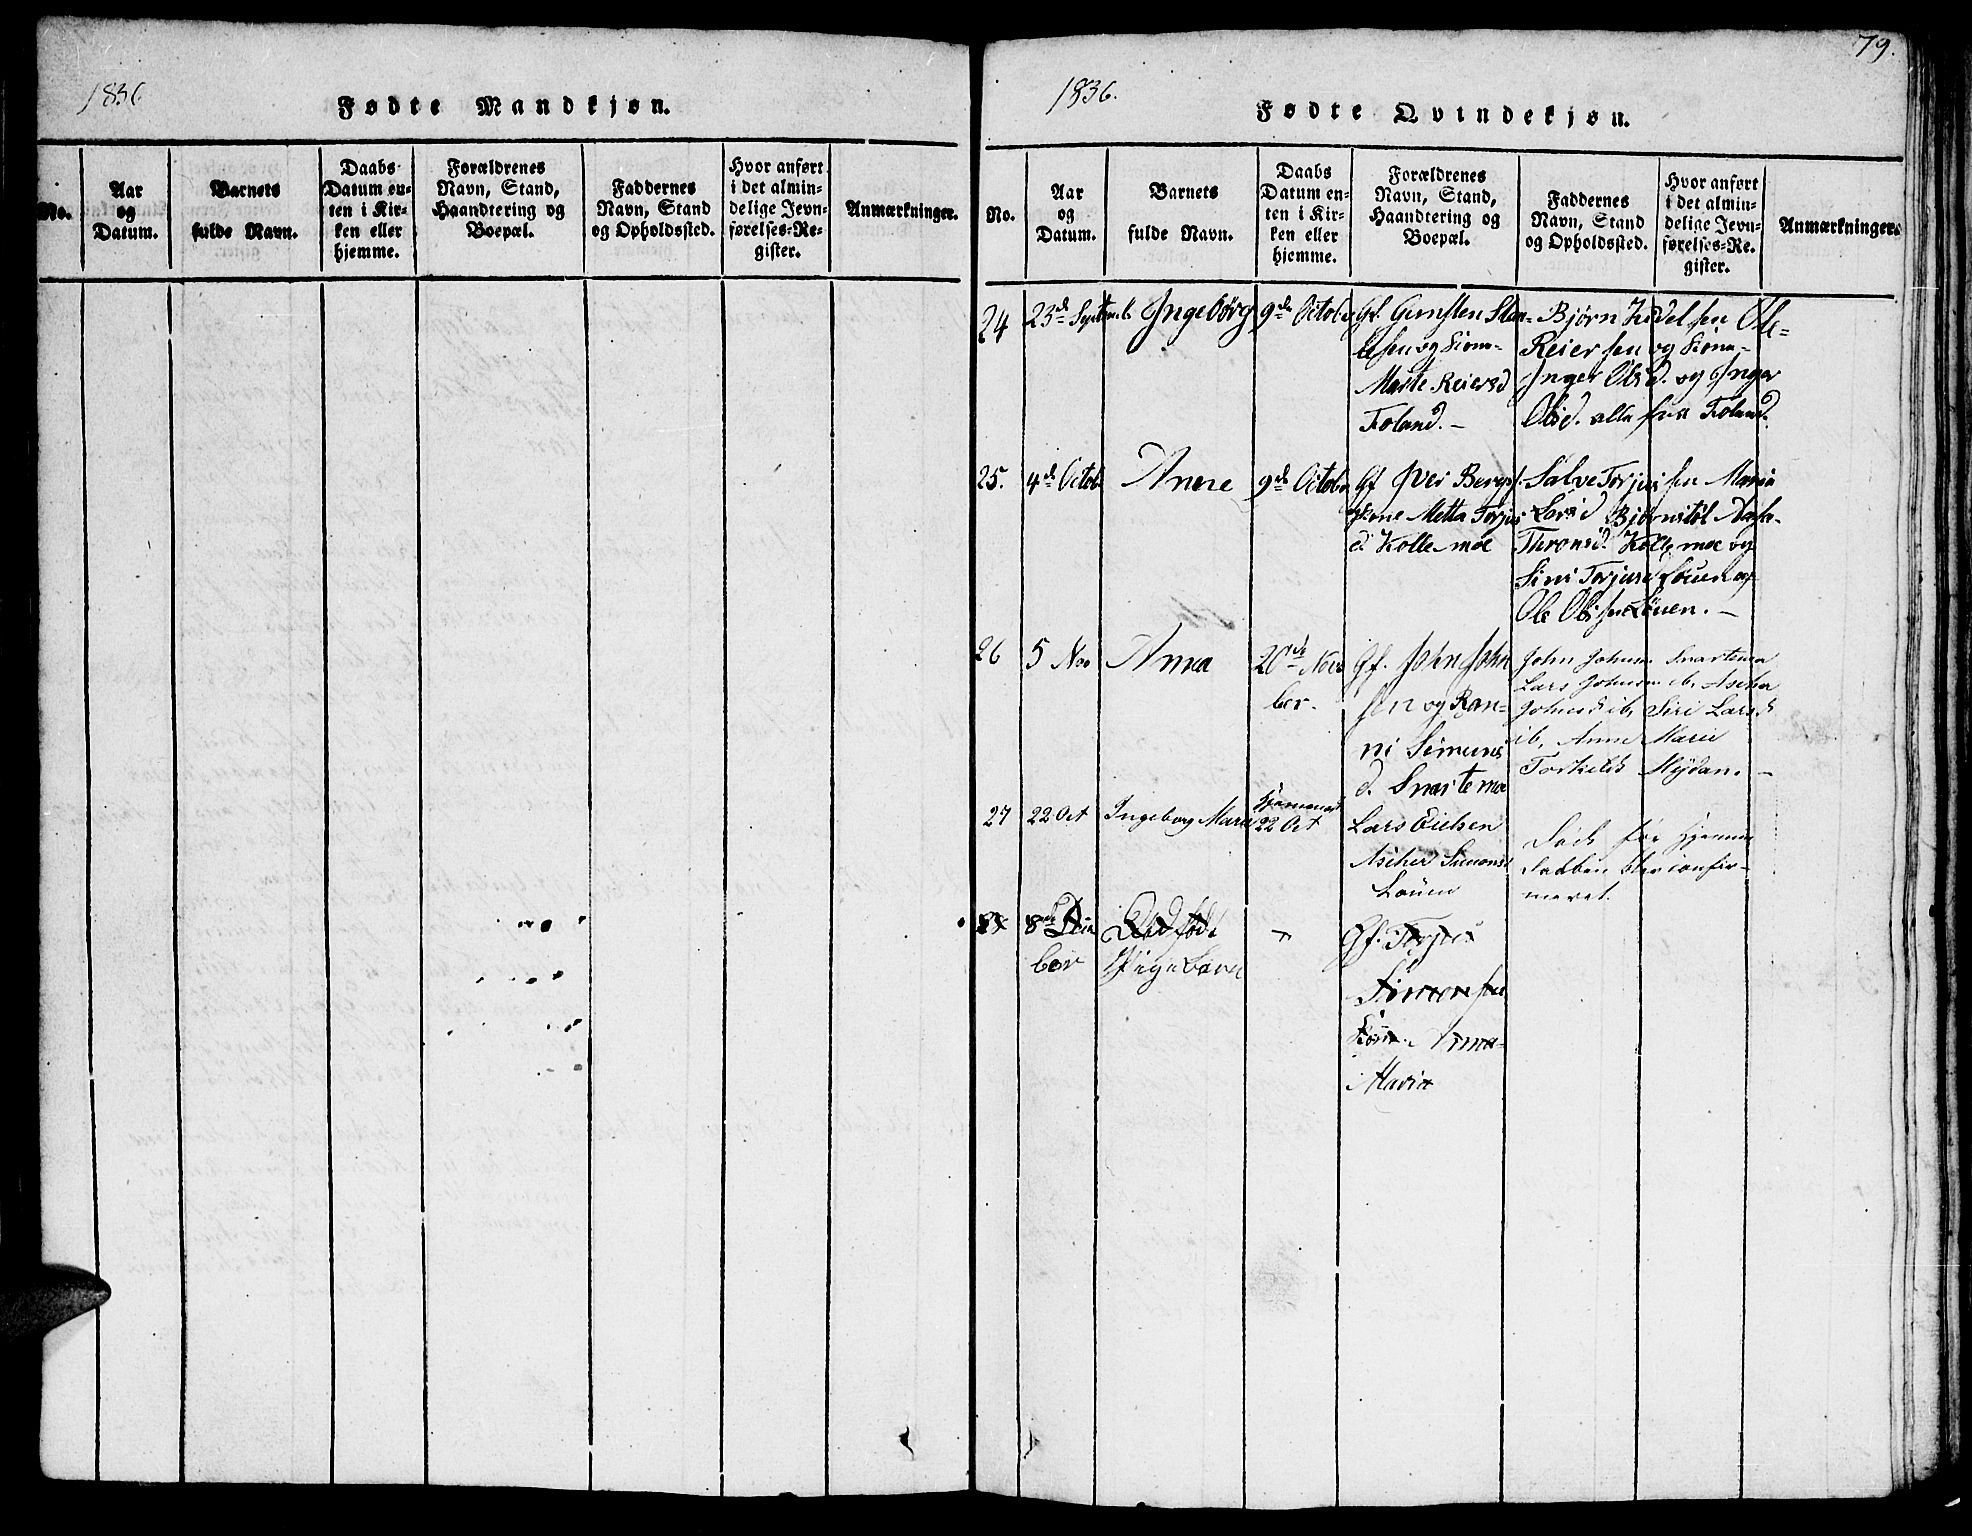 1836
Fødte Mandkjøn.
No.
Aar
og
Datum.
Barnets
fulde Navn.
Daabs-
Datum en-
ten i Kir-
ken eller
hjemme.
Forældrenes
Navn, Stand,
Haandtering og
Boepæl.
Faddernes
Navn, Stand
og Opholdssted.
Hvor anført
i det almin-
delige Jevn-
førelses-Re-
gister.
Anmærkninger.
79.
1836.
Fødte Qvindekjøn.
No.
Aar
og
Datum.
Barnets
fulde Navn.
Daabs
Datum en-
ten i Kir-
ken eller
hjemme.
Forældrenes
Navn, Stand,
Haandtering og
Boepæl.
Faddernes
Navn, Stand
og Opholdssted.
Hvor anført
i det almin-
delige Jevn-
førelses-Re-
gister.
Anmærkninger.
24
23de Septemb
Ingebörg
9de Octob
Gf. Gunsten
og Kone
Marte Reiersd
Foland. -
Bjørn Kedelsen Ole
Reiersen og Kone
Inger Olsd. og Inger
Olsd. alle fra Foland.
25.
4de Octob
Anne
9de Octob
Gf Iver
Kone Metta Torjus
d. Kollemoe
Salve Torjussen Maria
Larsd Bjørnstöl
Thronsd. Kollemoe og
Siri Torjusd Löuen og
Ole Olsen Löuen. -
26
5 Nov
Anna
20de Novem
ber.
Gf. John John
sen og Ran-
ni Simuns
d. Snartemo
John Johns. Snartemo
Lars Johnsen ib, Ascher
Johnsd ib, Siri Larsd
ib, Anne Marie
Torkelsd Höjdan. -
27
22 Oct
Ingeborg Marie
Hjemmedt
22 Oct
Lars Eielsen
Ascher Simonsd
Louen
Döde før Hjemme
Daaben blev confir-
meret.
8de
ber
Dödfödt
Pigebarn
Gf. Torjus
Simonsen
Kone. Anna
Maria